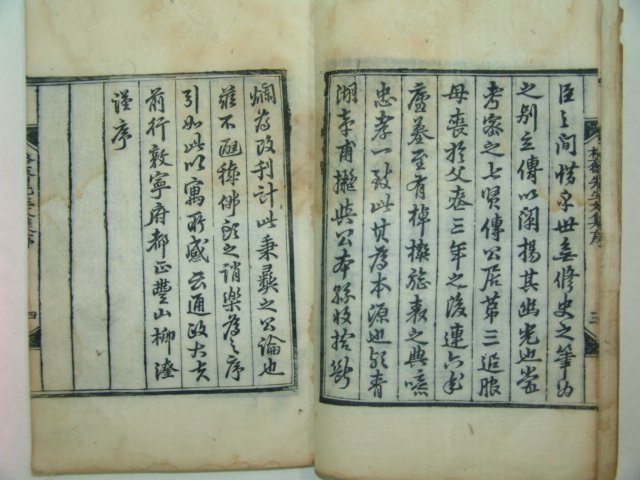 臣之間世無修史之筆
之別立傳以闡揚其幽光也嘗
考之七賢傳公居第三追服
母喪於父喪三年之後連六年
廬墓至有棹楔旌表之典噫
忠孝一致此其為本源也歟青
湖李甫擬與公本孫收拾斷
爛為改刊計此秉彛之公論也
雖不佛頭之誚樂為之序
引如此以寓所感云通政大夫
前行敦寧府都正豊山柳
謹序
先生文集序
三
四